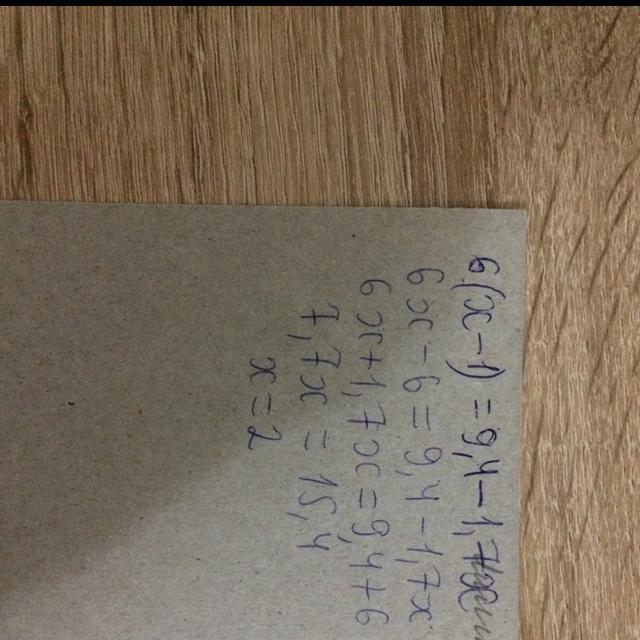 6(x-1)=9,4-1,7x
6x-6=9,4-1,7x
6x+1,7x=9,4+6
7,7x=15,4
x=2